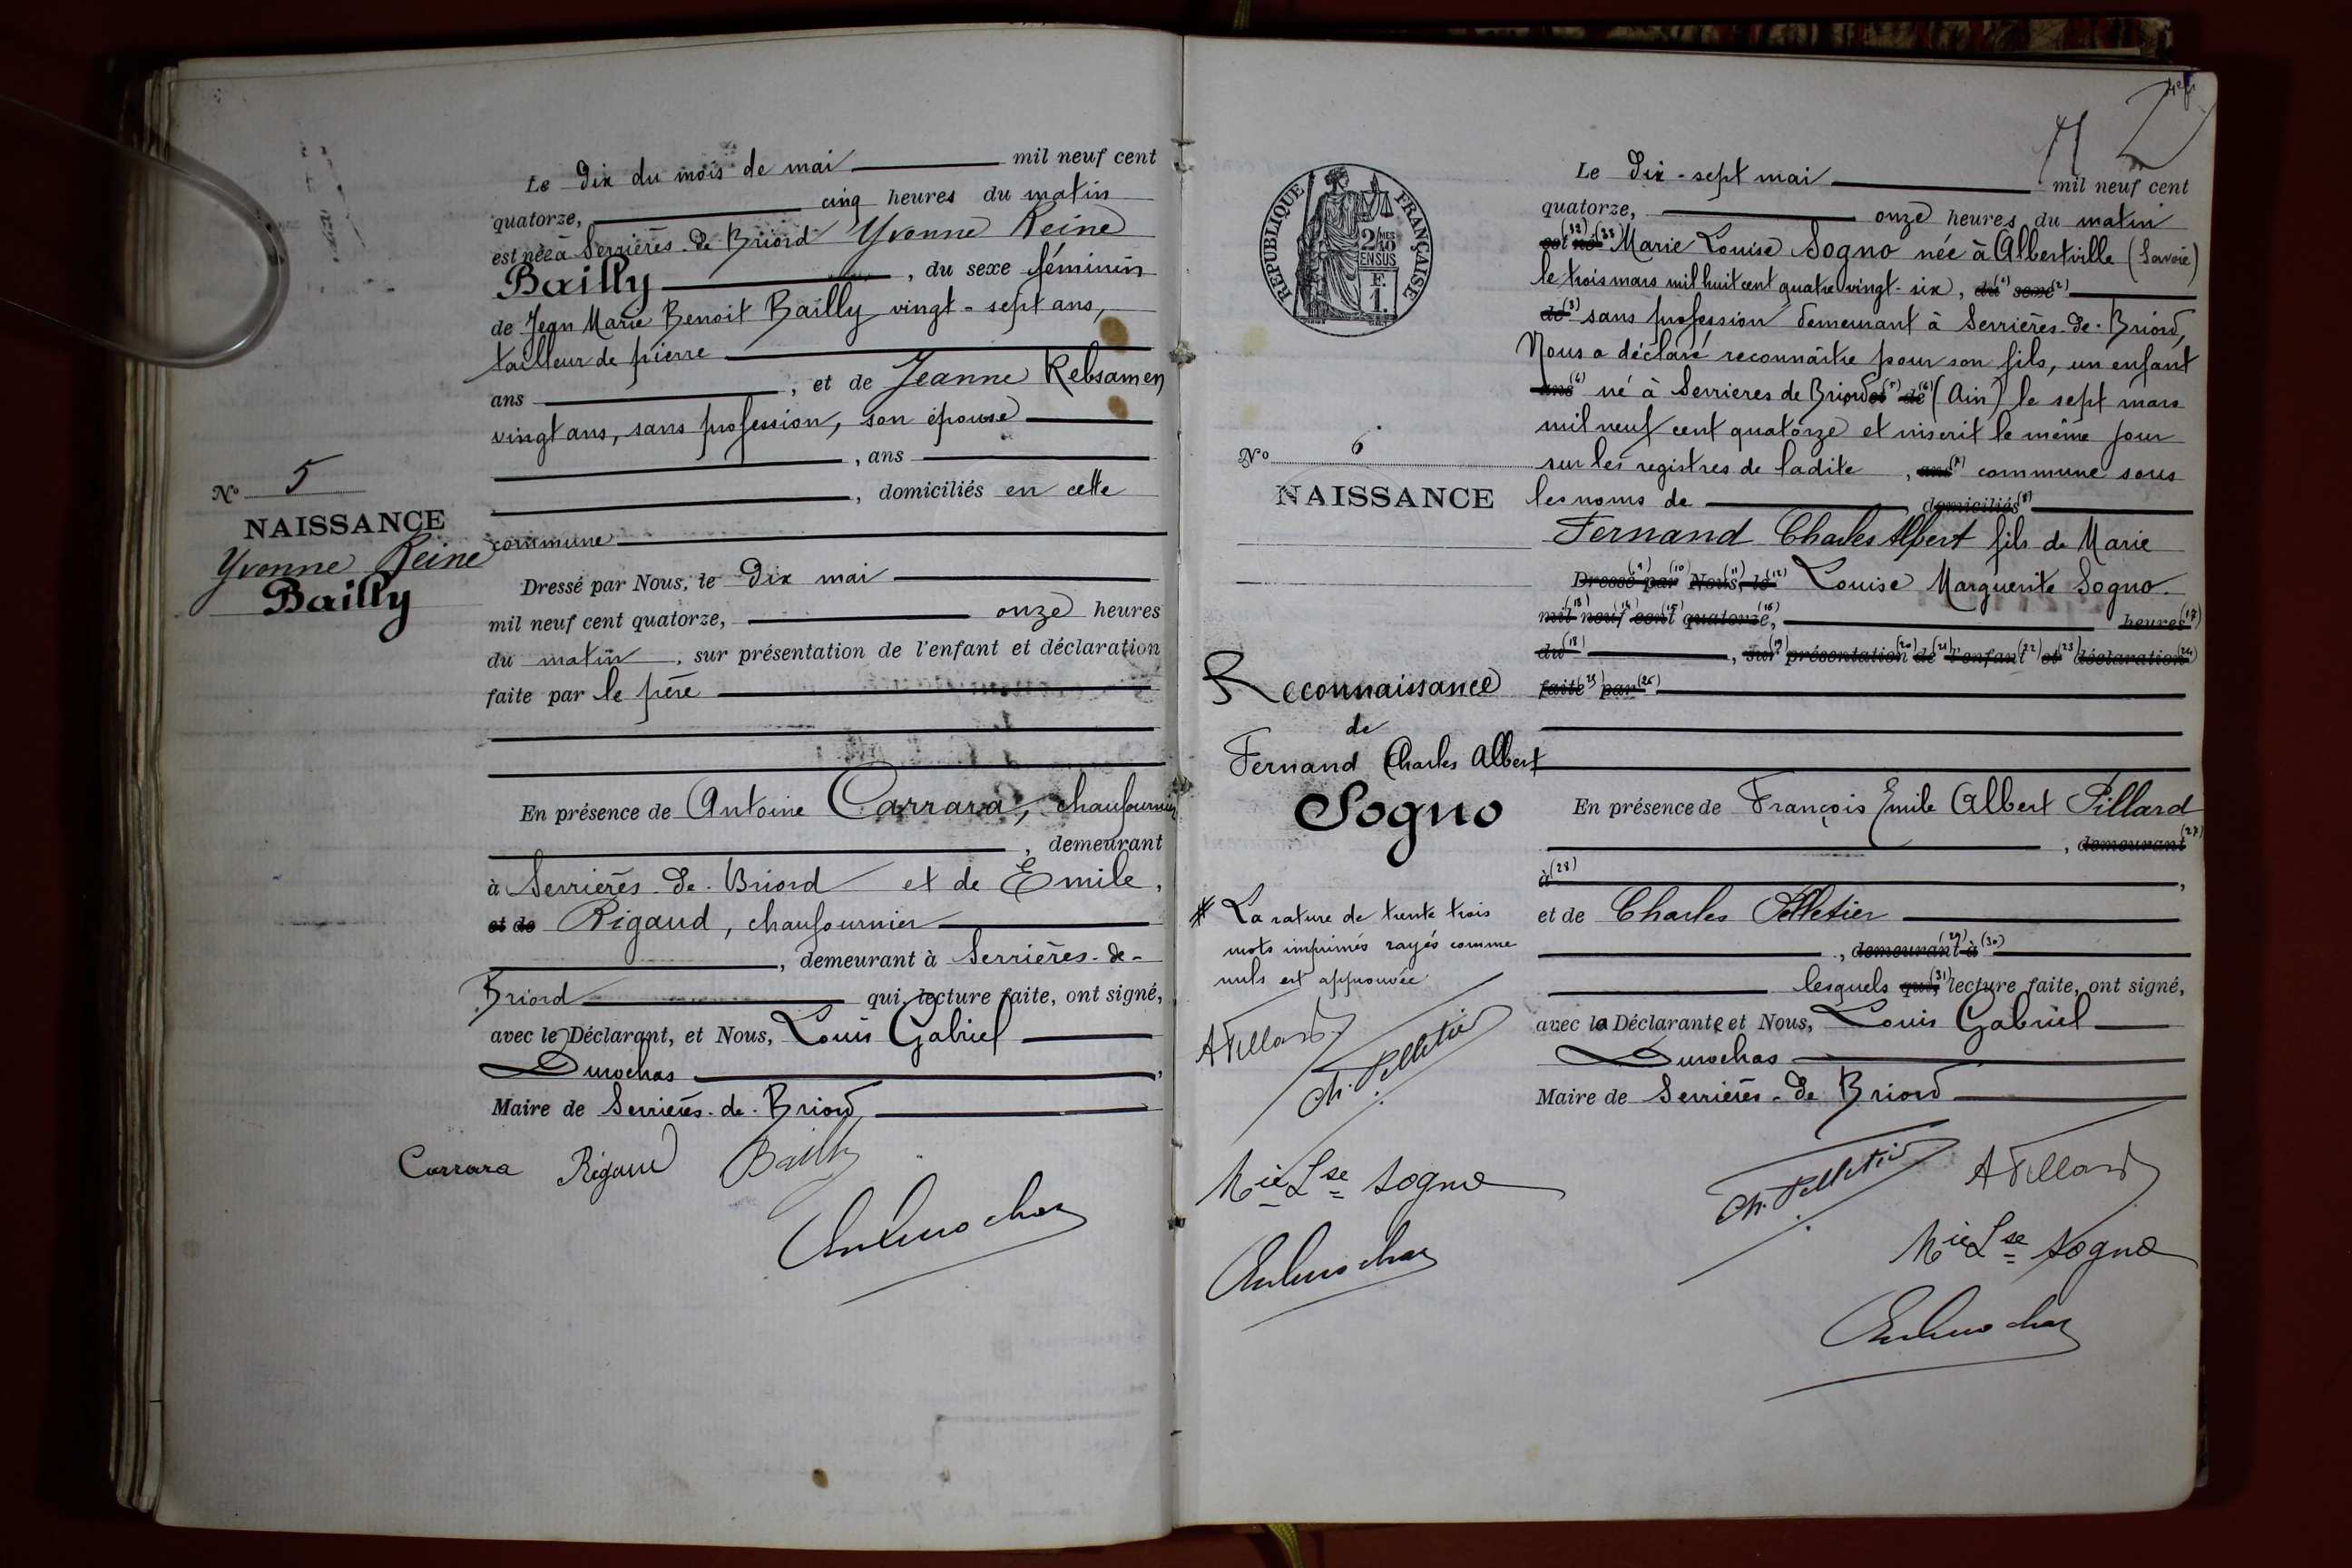 Le Dix du mois de mai mil neuf cent
quatorze, cinq heures du matin
est née à Serrières-de-Briord Yvonne Reine
Bailly, du sexe féminin
de Jean Marie Benoit Bailly vingt-sept ans,
tailleur de pierre
ans, et de Jeanne Rebsamen
vingt ans, sans profession, son épouse
, ans
, domiciliés en cette
commune
N° 5
NAISSANCE
Yvonne Reine
Bailly
Dressé par Nous, le Dix mai
mil neuf cent quatorze, onze heures
du matin, sur présentation de l'enfant et déclaration
faite par le père
En présence de Antoine Carrara, chaufournier
, demeurant
à Serrières-de-Briord et de Emile,
et de Rigaud, chaufournier
, demeurant à Serrières-de-
Briord qui, lecture faite, ont signé,
avec le Déclarant, et Nous, Louis Gabriel
Durochas,
Maire de Serrières-de-Briord
Carrara Rigaud Bailly
Durochas
RÉPUBLIQUE FRANÇAISE
2/10MES
EN SUS
F.
1.
N° 6
NAISSANCE
Reconnaissance
de
Fernand Charles Albert
Sogno
# La rature de trente trois
mots imprimés rayés comme
nuls est approuvée
A Pillard
Ch. Pelletier
Mie Lse Sogno
Durochas
Le Dix-sept mai mil neuf cent
quatorze, onze heures du matin
est (32) né (33) Marie Louise Sogno née à Albertville (Savoie)
le trois mars mil huit cent quatre vingt-six, du (1) sexe (2)
de (3) sans profession demeurant à Serrières-de-Briord,
Nous a déclaré reconnaître pour son fils, un enfant
ans (4) né à Serrieres de Briord et (5) de (6) (Ain) le sept mars
mil neuf cent quatorze et inscrit le même jour
sur les registres de ladite, ans (7) commune sous
les noms de domiciliés (8)
Fernand Charles Albert fils de Marie
Dressé (9) par (10) Nous (11), le (12) Louise Marguerite Sogno.
mil (13) neuf (14) cent (15) quatorze (16), heures (17)
du (18), sur (19) présentation (20) de (21) l'enfant (22) et (23) déclaration (24)
faite (25) par (26)
En présence de François Emile Albert Pillard
, demeurant (27)
à (28),
et de Charles Pelletier
, demeurant (29) à (30)
lesquels qui, (31) lecture faite, ont signé,
avec la Déclarante et Nous, Louis Gabriel
Durochas
Maire de Serrières-de-Briord
Ch. Pelletier A Pillard
Mie Lse Sogno
Durochas